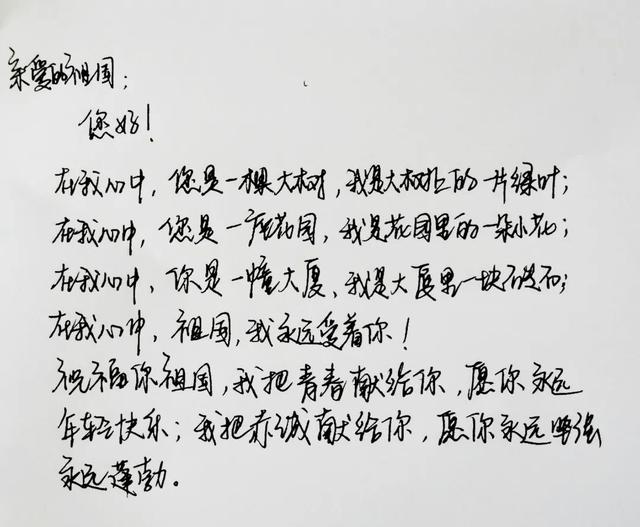 亲爱的祖国：
您好！
在我心中，您是一棵大树，我是大树上的一片绿叶；
在我心中，您是一座花园，我是花园里的一朵小花；
在我心中，你是一幢大厦，我是大厦里一块石；
在我心中，祖国，我永远爱着你！
祝福你祖国，我把青春献给你，愿你永远
年轻快乐；我把赤诚献给你，愿你永远坚强
永远蓬勃。